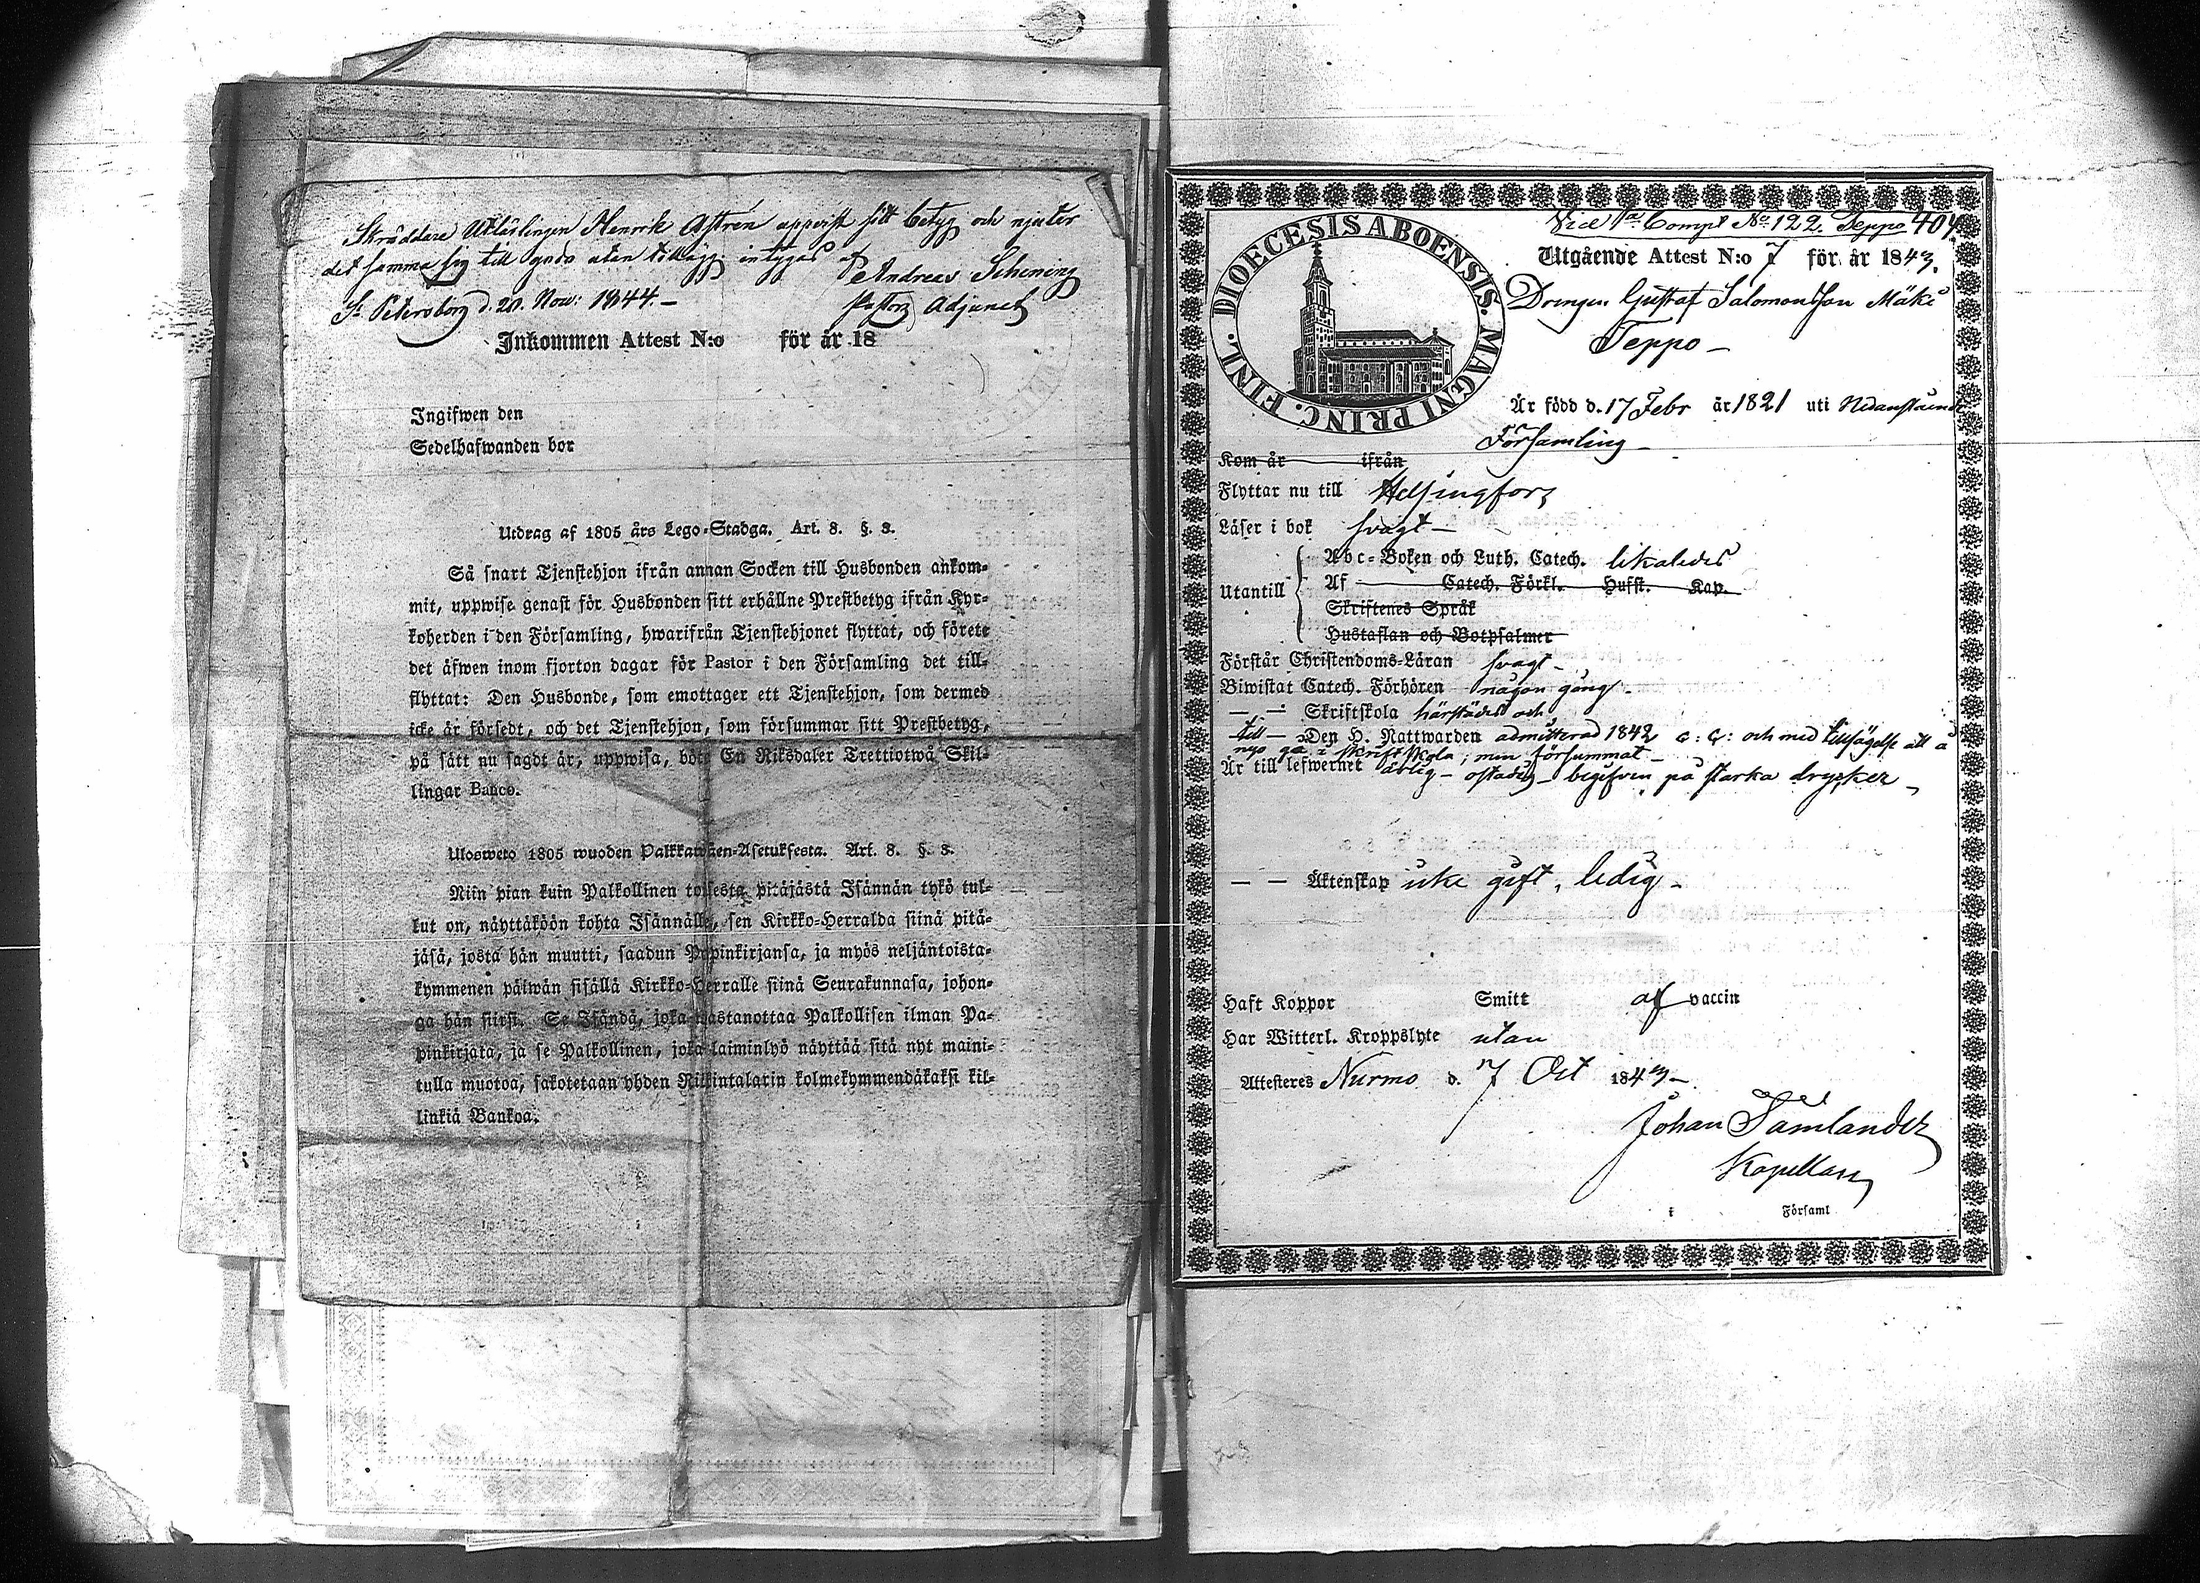 Skräddare Utlärlingen Henrik Astrén uppvist sitt betyg och njuter
det samma sig till godo utan tillägg, intygas af
Andreas Schening
St Petersborg d. 20. Nov: 1844.–
Pastors Adjunct
Inkommen Attest N:o för år 18
Ingifwen den
Sedelhafwanden bor
Utdrag af 1805 års Lego-Stadga. Art. 8. §. 3.
Så snart Tjenstehjon ifrån annan Socken till Husbonden ankom-
mit, uppwise genast för Husbonden sitt erhållne Prestbetyg ifrån Kyr-
koherden i den Församling, hwarifrån Tjenstehjonet flyttat, och förete
det äfwen inom fjorton dagar för Pastor i den Församling det till-
flyttat: Den Husbonde, som emottager ett Tjenstehjon, som dermed
icke är försedt, och det Tjenstehjon, som försummar sitt Prestbetyg,
på sätt nu sagdt är, uppwisa, böte En Riksdaler Trettiotwå Skil-
lingar Banco.
Ulosweto 1805 wuoden Palkkawäen-Asetuksesta. Art. 8. §. 3.
Niin pian kuin Palkollinen toisesta pitäjästä Isännän tykö tul-
lut on, näyttäköön kohta Isännälle, sen Kirkko-Herralda siinä pitä-
jäsä, josta hän muutti, saadun Papinkirjansa, ja myös neljäntoista-
kymmenen päiwän sisällä Kirkko-Herralle siinä Seurakunnasa, johon-
ga hän siirsi. Se Isändä, joka wastanottaa Palkollisen ilman Pa-
pinkirjata, ja se Palkollinen, joka laiminlyö näyttää sitä nyt maini-
tulla muotoa, sakotetaan yhden Riikintalarin kolmekymmendäkaksi kil-
linkiä Bankoa.
Vice Pa. Compt No. 122. Teppo 404.
DIOECESIS ABOENSIS. MAGNI PRINC. FINL.
Utgående Attest N:o 7 för år 1843.
Drengen Gustaf Salomonsson Mäki
Teppo –
Är född d. 17 Febr år 1821 uti Nedanstående
Församling –
Kom år ifrån
Flyttar nu till Helsingfors
Läser i bok svagt –
Utantill
Abc-Boken och Luth. Catech. likaledes
Af Catech. Förkl. Husst. Kap.
Skriftenes Språk
Hustaflan och Botpsalmer
Förstår Christendoms-Läran svagt –
Biwistat Catech. Förhören någon gång –
— — Skriftskola härstädes och
— till — Den H. Nattwarden admitterad 1842 c: c: och med tillsägelse att å
nyo gå i skriftskola; men försummat –
Är till lefwernet ärlig – ostadig – begifven på starka drycker –
— — Äktenskap icke gift, ledig –
Haft Koppor Smitt af vaccin
Har Witterl. Kroppslyte utan
Attesteres Nurmo d. 7 Oct 1843 –
Johan Tämlander
Kapellan
i Församl